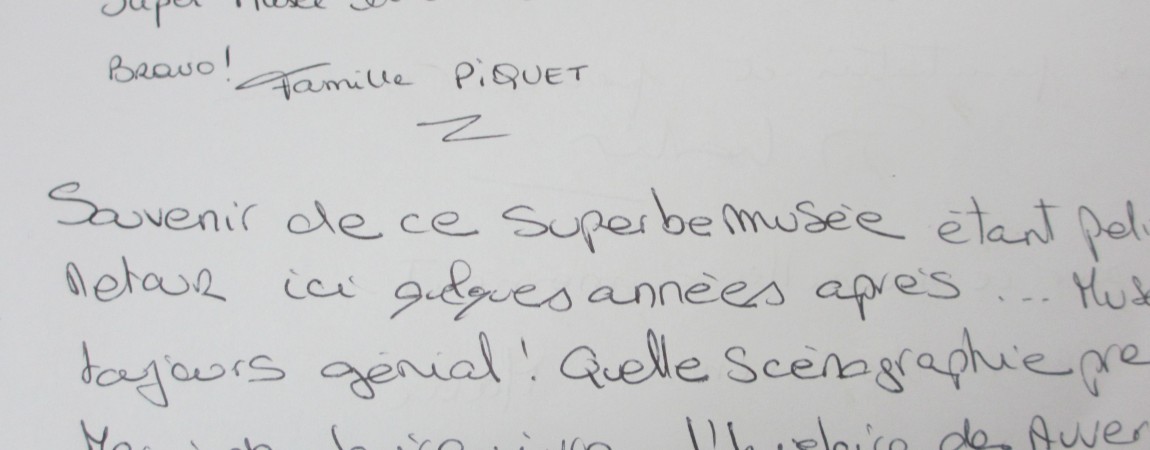 Super Musée
Bravo! Famille PiQUET
Souvenir de ce superbe musée étant
Retour ici quelques années après ... Mus
toujours génial! Quelle scénographie pre
des Auver